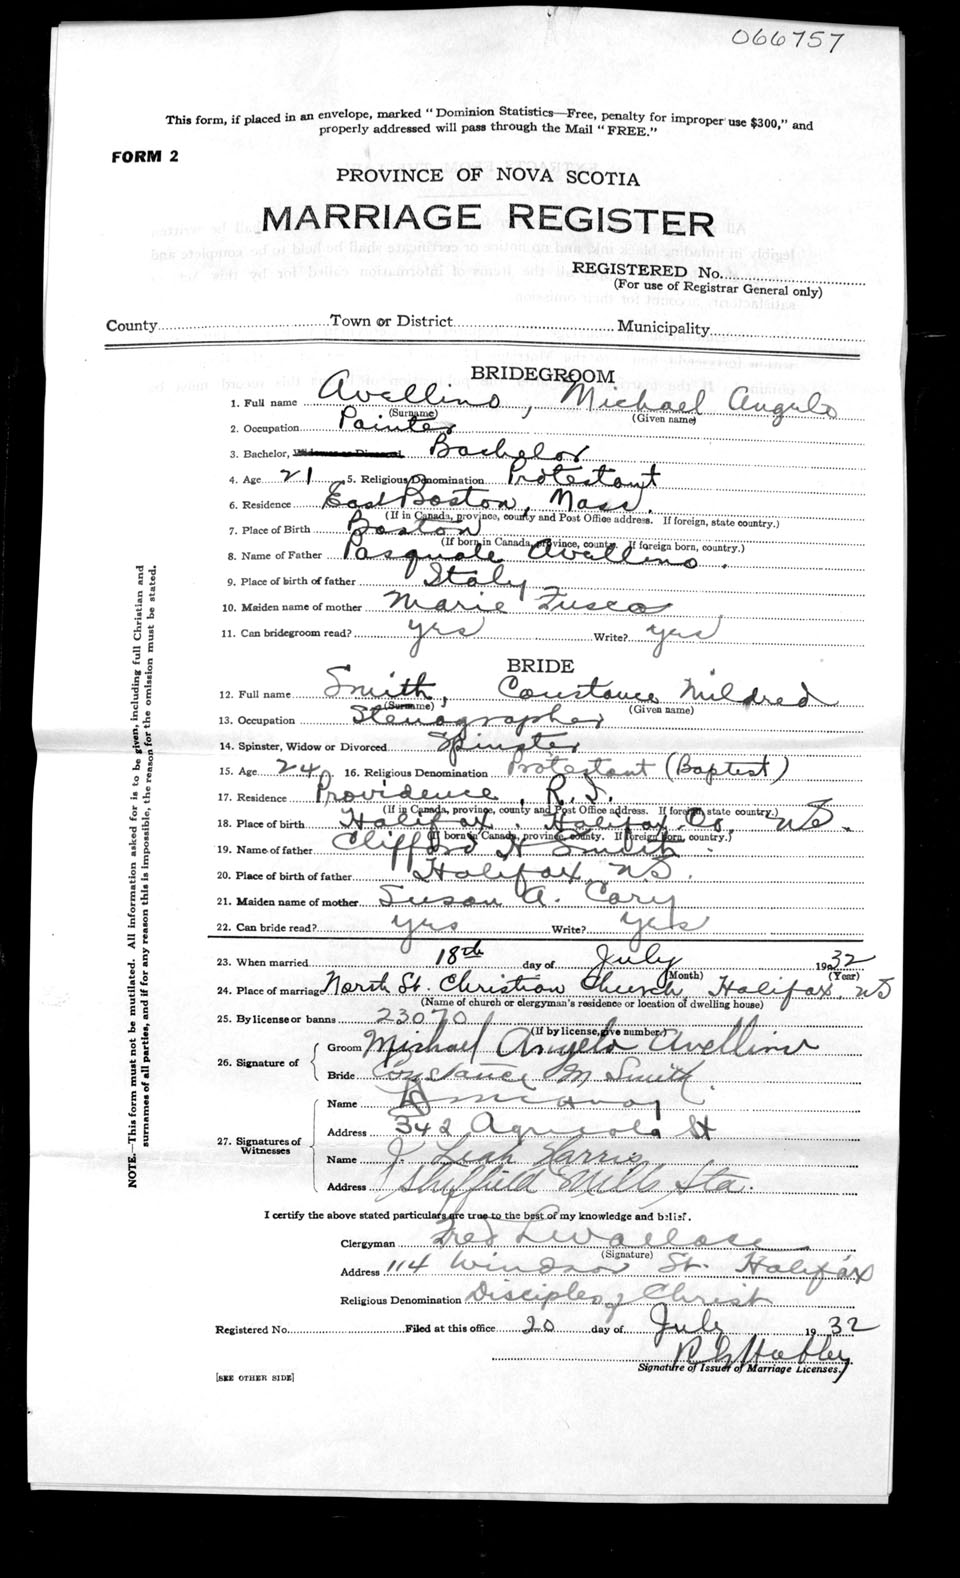 066757
This form, if placed in an envelope, marked "Dominion Statistics—Free, penalty for improper use $300," and
properly addressed will pass through the Mail "FREE."
FORM 2
PROVINCE OF NOVA SCOTIA
MARRIAGE REGISTER
REGISTERED No.
(For use of Registrar General only)
County Town or District Municipality
BRIDEGROOM
1. Full name Avellino, Michael Angelo
(Surname) (Given name)
2. Occupation Painter
3. Bachelor, Widower or Divorced Bachelor
4. Age 21 5. Religious Denomination Protestant
6. Residence East Boston, Mass.
(If in Canada, province, county and Post Office address. If foreign, state country.)
7. Place of Birth Boston
(If born in Canada, province, county. If foreign born, country.)
8. Name of Father Pasquale Avellino.
9. Place of birth of father Italy
10. Maiden name of mother Marie Fusco
11. Can bridegroom read? yes Write? yes
BRIDE
12. Full name Smith, Constance Mildred
(Surname) (Given name)
13. Occupation Stenographer
14. Spinster, Widow or Divorced Spinster
15. Age 24 16. Religious Denomination Protestant (Baptist)
17. Residence Providence, R.I.
(If in Canada, province, county and Post Office address. If foreign, state country.)
18. Place of birth Halifax. Halifax Co, NS.
(If born in Canada, province, county. If foreign born, country.)
19. Name of father Clifford H Smith.
20. Place of birth of father Halifax, N.S.
21. Maiden name of mother Susan A. Cary
22. Can bride read? yes Write? yes
23. When married 18th day of July 1932
(Month) (Year)
24. Place of marriage North St. Christian Church, Halifax, NS
(Name of church or clergyman's residence or location of dwelling house)
25. By license or banns 23070
(If by license, give number.)
26. Signature of
Groom Michael Angelo Avellino
Bride Constance M Smith.
27. Signatures of
Witnesses
Name
Address 342 Agricola St
Name J. Leah Harris
Address Sheffield Mills, Sta.
I certify the above stated particulars are true to the best of my knowledge and belief.
Clergyman Fred
(Signature)
Address 114 Windsor St. Halifax
Religious Denomination Disciples of Christ
Registered No. Filed at this office 20 day of July 1932
Signature of Issuer of Marriage Licenses.
[SEE OTHER SIDE]
NOTE.—This form must not be mutilated. All information asked for is to be given, including full Christian and
surnames of all parties, and if for any reason this is impossible, the reason for the omission must be stated.